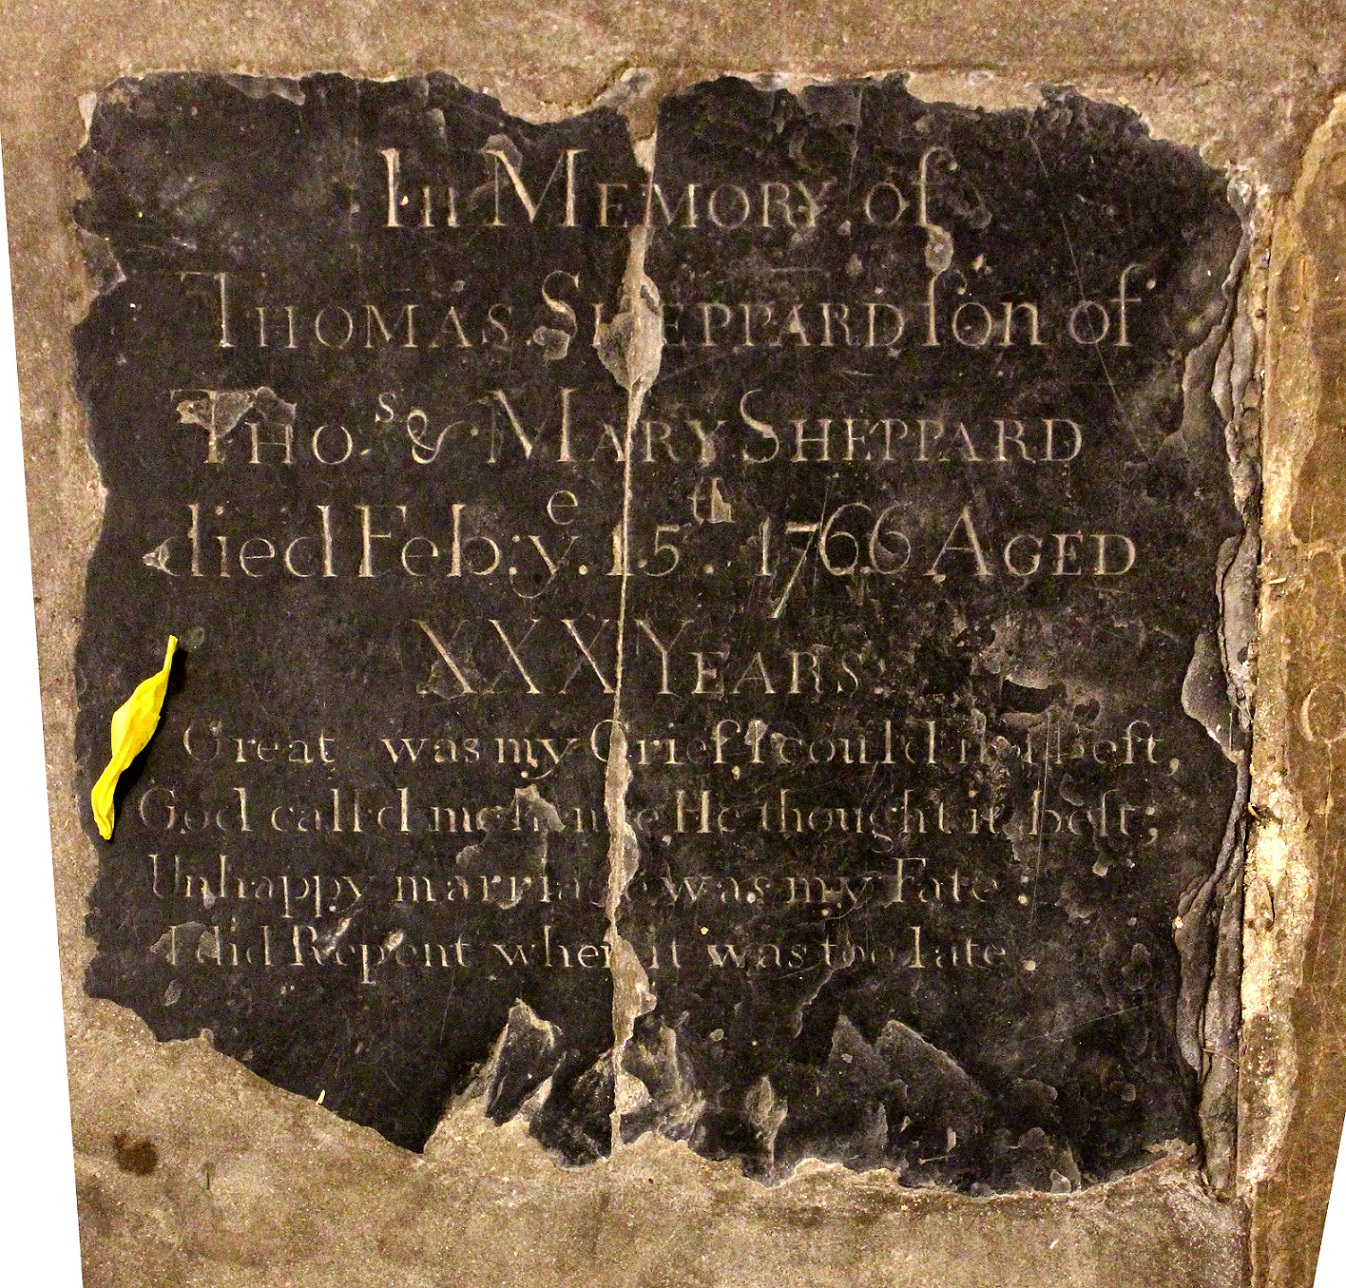 In MEMORY of
THOMAS SHEPPARD ſon of
THOˢ & MARY SHEPPARD
died Feb: yᵉ. 15ᵗʰ. 1766 AGED
XXX YEARS.
Great was my Grief I could not Reſt,
God call'd me hence He thought it beſt;
Unhappy marriage was my Fate:
I did Repent when it was too late.